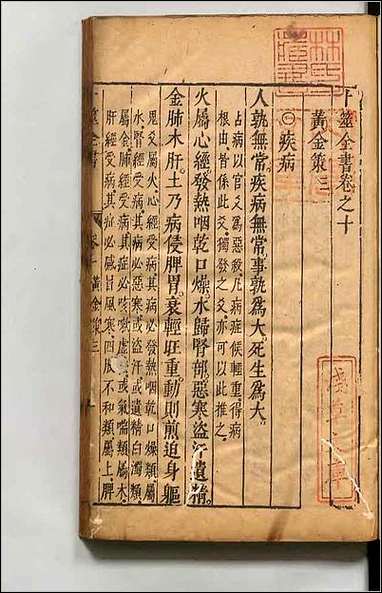 卜筮全書卷之十
黃金策三
疾病
人孰無常疾病無常事孰爲大死生爲大
占病以官爻爲惡殺凡病症候輕重得病
根由皆係此爻獨發之爻亦可以此推之
火屬心經發熱咽乾口燥水歸腎部惡寒盜汗遺精
金肺木肝土乃病侵脾胃衰輕旺重動則煎迫身軀
鬼爻屬火心經受病其病必發熱咽乾口燥類屬
水腎經受病其病必惡寒或盜汗或遺精白濁類
屬金肺經受病其症必咳嗽虛或氣喘類屬木
肝經受病其症必感冒風寒四肢不和類屬土脾
筮全書
卷十 黃金策三
淺草文庫